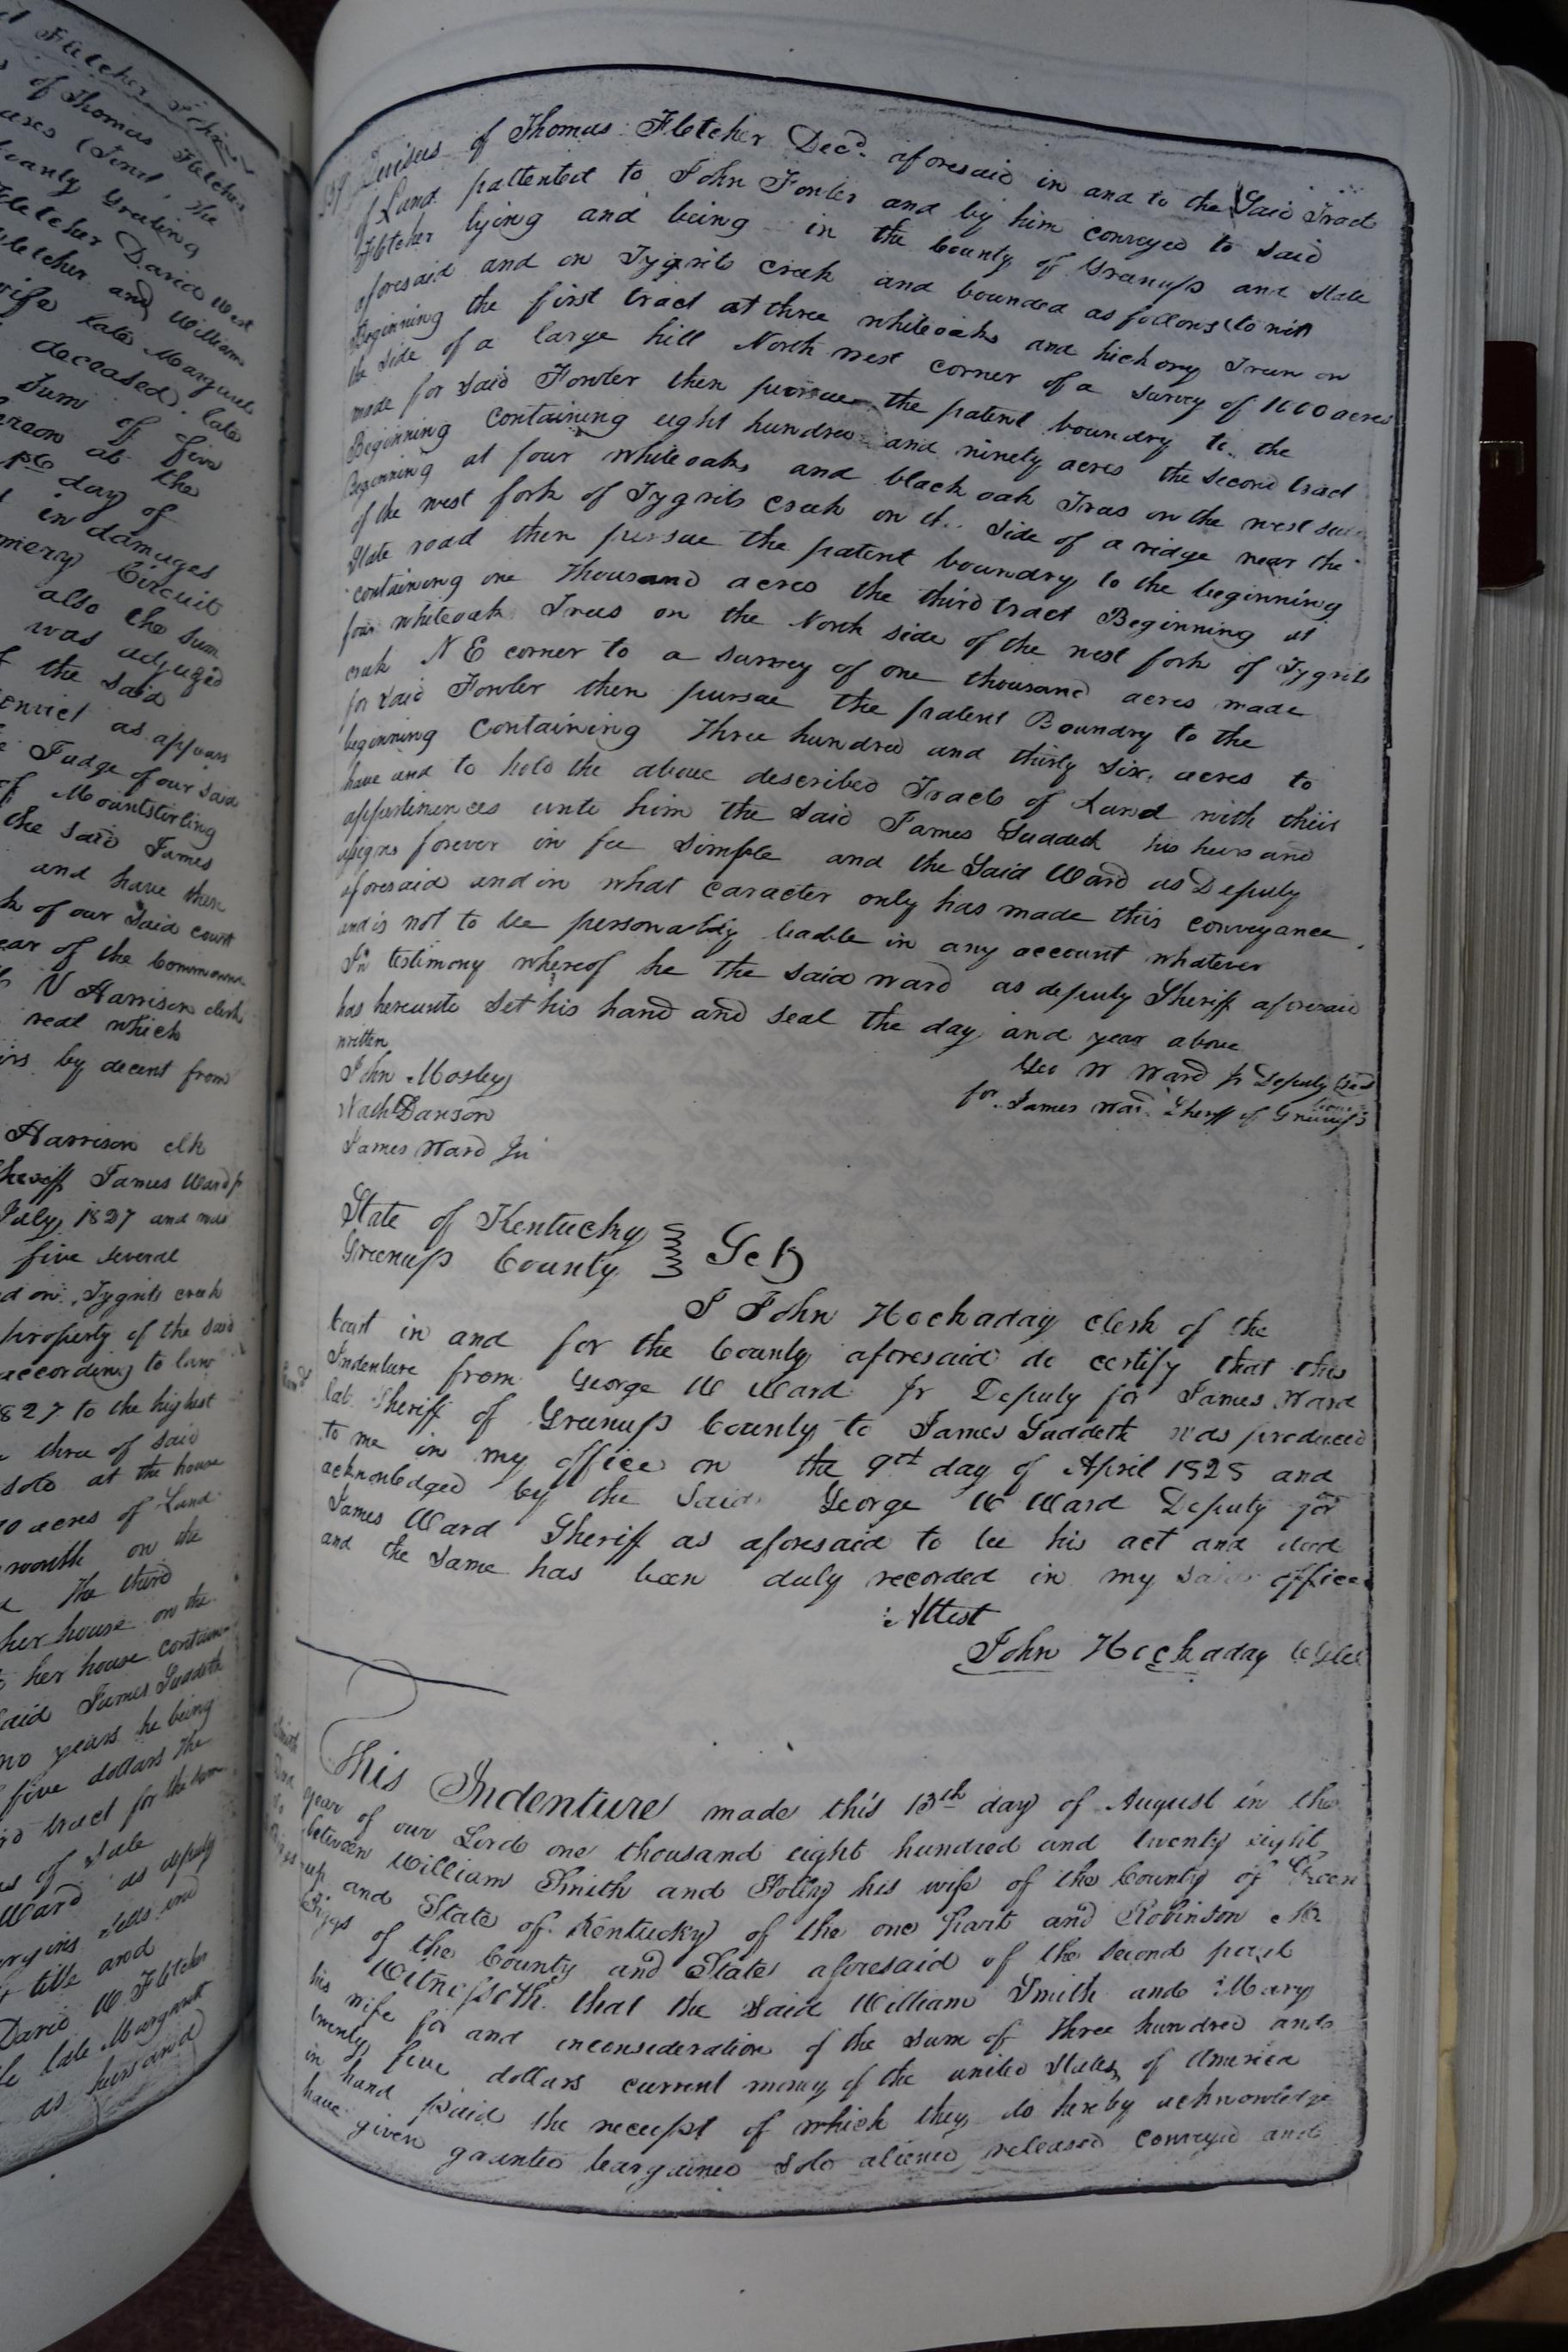 Fletcher
of Thomas Fletcher
the
County Greeting
Fletcher David West
Fletcher and William
wife late Margaret
deceased. late
Sum of five
at the
day of
in damages
Circuit
also the sum
was adjuged
of the said
convict as appears
Judge of our said
of Mountsterling
the said James
and have then
of our said court
year of the Commonwe
N Harrison clerk
real which
by decent from
Harrison clk
Sheriff James Ward
July 1827 and was
five several
on Tygrits creek
property of the said
according to law
1827 to the highest
three of said
sold at the house
acres of Land
month on the
the third
her house on the
her house contain
said James Suddeth
two years he being
five dollars the
tract for the sum
of sale
Ward as deputy
sells and
title and
David W Fletcher
late Margaret
as husband
Devisees of Thomas Fletcher Decd. aforesaid in and to the Said Tract
of Land pattented to John Fowler and by him conveyed to said
Fletcher lying and being in the County of Greenup and state
aforesaid and on Tygrits creek and bounded as follows (to wit)
Beginning the first tract at three whiteoaks and hickory Trees on
the side of a large hill North west corner of a survey of 1000 acres
made for said Fowler then pursue the patent boundry to the
Beginning containing eight hundred and ninety acres the second tract
Beginning at four whiteoaks and black oak Trees on the west side
of the west fork of Tygrits Creek on the side of a ridge near the
State road then pursue the patent boundry to the beginning
containing one thousand acres the third tract Beginning at
four whiteoak Trees on the North side of the west fork of Tygrits
creek N E corner to a survey of one thousand acres made
for said Fowler then pursue the patent Boundry to the
beginning Containing Three hundred and thirty six acres to
have and to hold the above described Tracts of Land with their
appertinences unto him the said James Suddeth his heirs and
assigns forever in fee simple and the Said Ward as Deputy
aforesaid and in what caracter only has made this conveyance
and is not to be personably leable in any account whatever
In testimony whereof he the said Ward as deputy Sheriff aforesaid
has hereunto set his hand and seal the day and year above
written
Geo W Ward jr Deputy Seal
John Mosley
for James Ward Sheriff of Greenup
Nathl Dawson
James Ward Jr
State of Kentucky
Greenup County Sct
I John Hockaday clerk of the
Court in and for the County aforesaid do certify that this
Indenture from George W Ward jr Deputy for James Ward
late Sheriff of Greenup County to James Suddeth was produced
to me in my office on the 9th day of April 1828 and
acknowledged by the Said George W Ward Deputy for
James Ward Sheriff as aforesaid to be his act and deed
and the same has been duly recorded in my said office
Attest
John Hockaday
Smith
to
This Indenture made this 13th day of August in the
year of our Lord one thousand eight hundred and twenty eight
between William Smith and Polly his wife of the County of Green
up and State of Kentucky of the one part and Robinson M
Biggs of the County and State aforesaid of the second part
Witnesseth that the Said William Smith and Mary
his wife for and inconsideration of the sum of three hundred and
twenty five dollars current money of the united States of America
in hand paid the receipt of which they do hereby acknowledge
have given granted bargained sold aliened released conveyed and